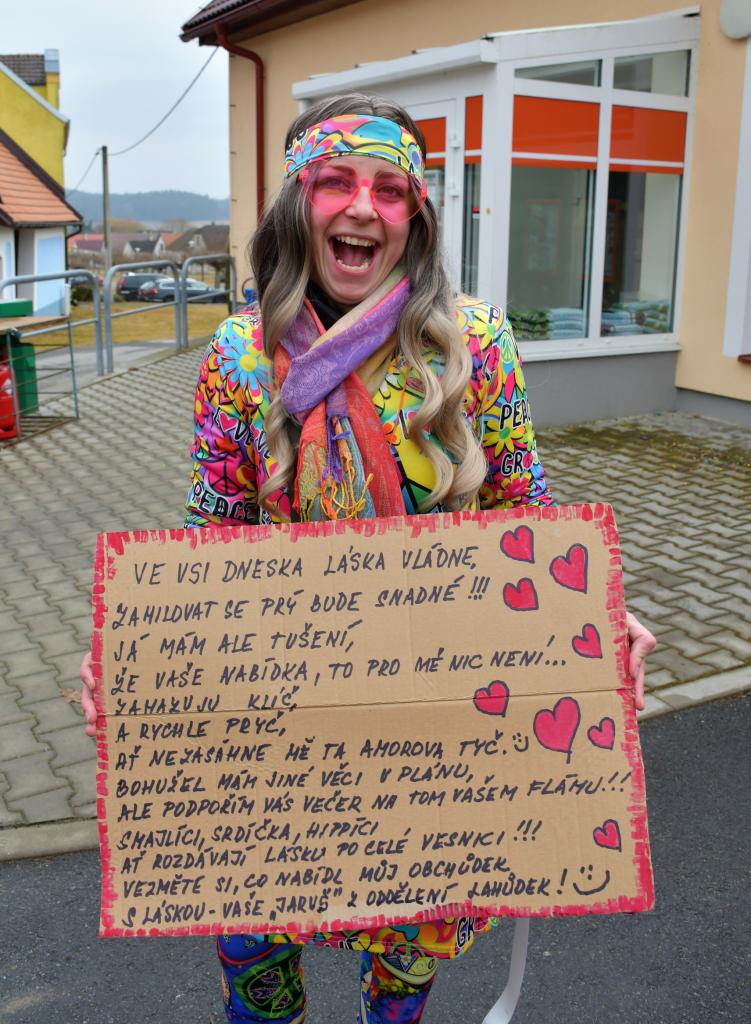 VE VSI DNESKA LÁSKA VLÁDNE,
ZAMILOVAT SE PRÝ BUDE SNADNÉ!!!
JÁ MÁM ALE TUŠENÍ,
ŽE VAŠE NABÍDKA, TO PRO MÉ NIC NENÍ!...
ZAMAZUJU KLÍČ,
A RYCHLE PRYČ,
AŤ NEZASÁHNE MĚ TA AMOROVA TYČ.
BOHUŽEL MÁM JINÉ VĚCI V PLÁNU,
ALE PODPOŘÍM VÁS VEČER NA TOM VAŠEM FLÁMU!!!
SMAJLÍCI, SRDÍČKA, HIPPÍCI
AŤ ROZDÁVAJÍ LÁSKU PO CELÉ VESNICI!!!
VEZMĚTE SI, CO NABÍDL MŮJ OBCHŮDEK
S LÁSKOU - VAŠE „JARUŠ" Z ODDĚLENÍ LAHŮDEK!
LOVE
PEACE
PEACE
GR